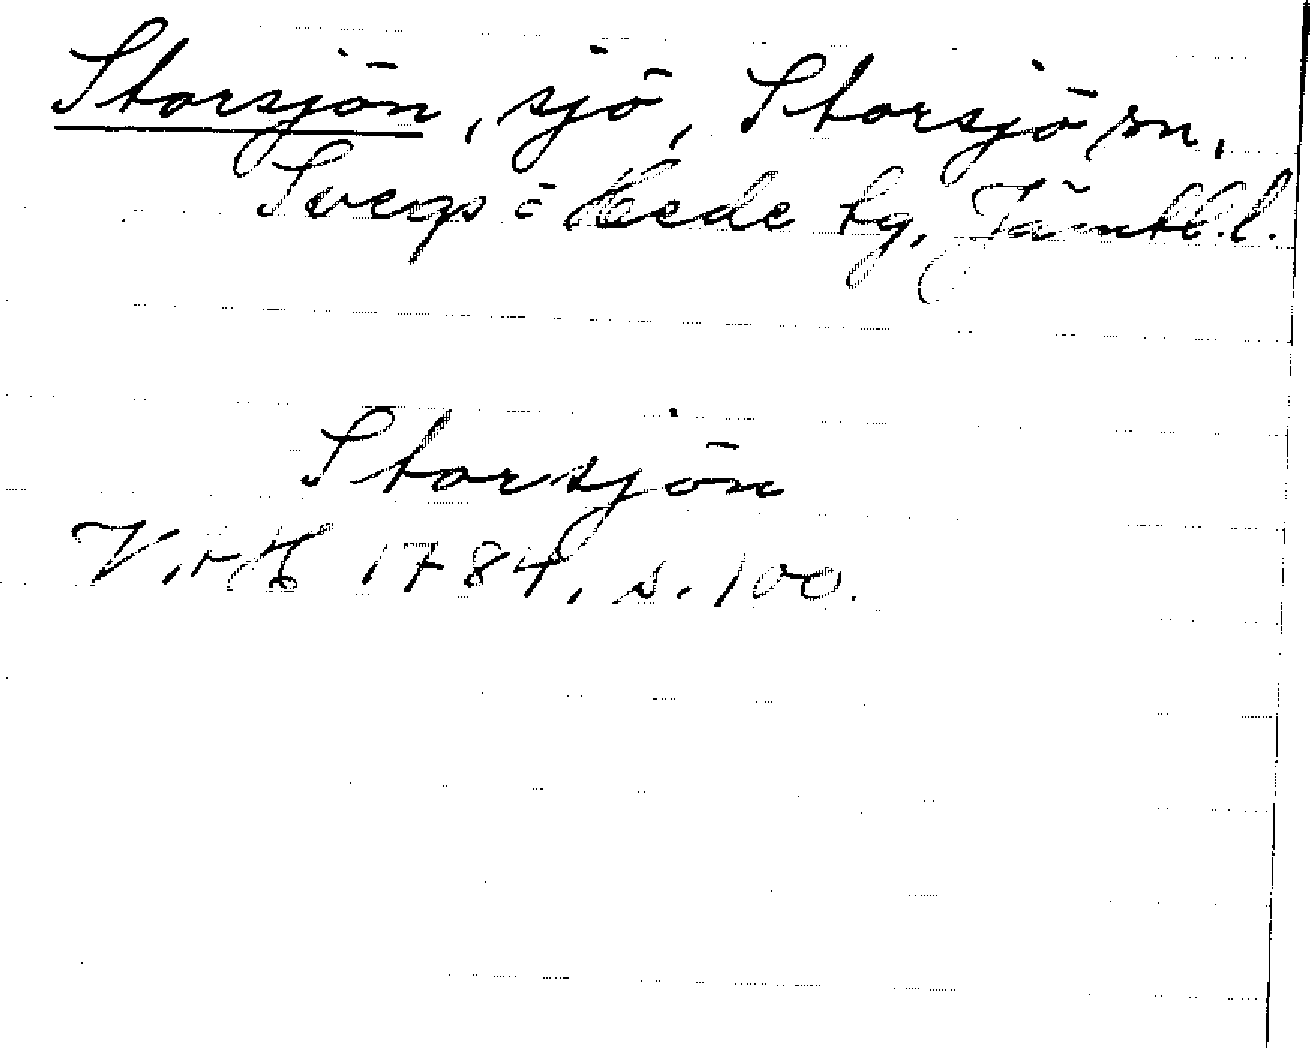 Storsjön, sjö, Storsjö sn,
Svegs = Hede tg, Jämtl.l.
Storsjön
1784, s. 100.